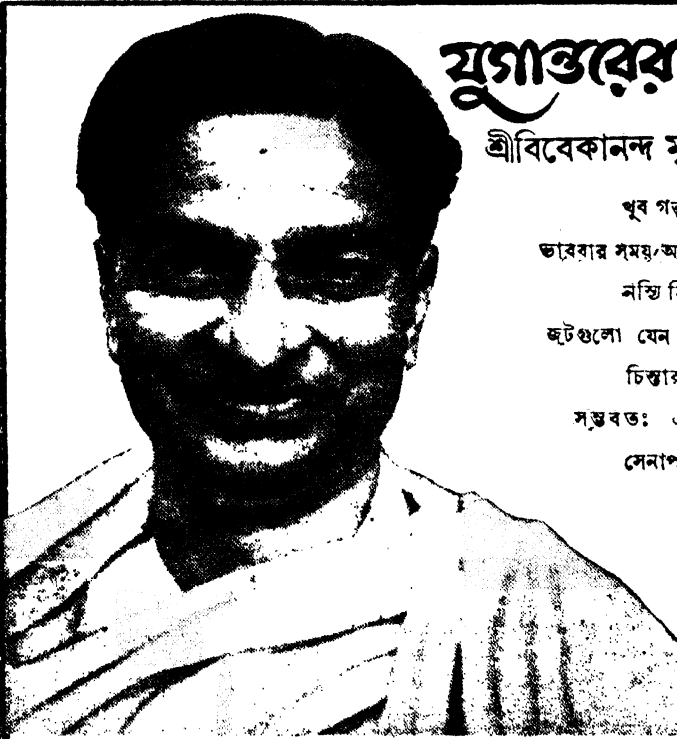 যুগান্তরের
শ্রীবিবেকানন্দ
খুব
ভাববার সময়
নস্যি
জটগুলো যেন
চিন্তার
সম্ভবতঃ